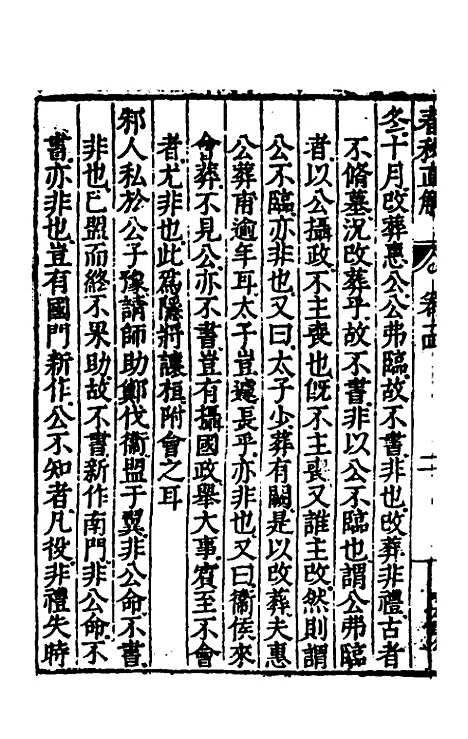 冬十月改葬惠公公弗臨故不書非也改葬非禮古者
不脩墓况改葬乎故不書非以公不臨也謂公弗臨
者以公攝政不主喪也旣不主喪又誰主改然則謂
公不臨亦非也又曰太子少葬有闕是以改葬夫惠
公葬甫逾年耳太子豈遽長乎亦非也又曰衞侯來
會葬不見公亦不書豈有攝國政舉大事賓至不會
者尤非也此爲隱將讓桓附會之耳
邾人私於公子豫請師助鄭伐衞盟于翼非公命不書
非也已盟而終不果助故不書新作南門非公命不
書亦非也豈有國門新作公不知者凡役非禮失時
春秋直解